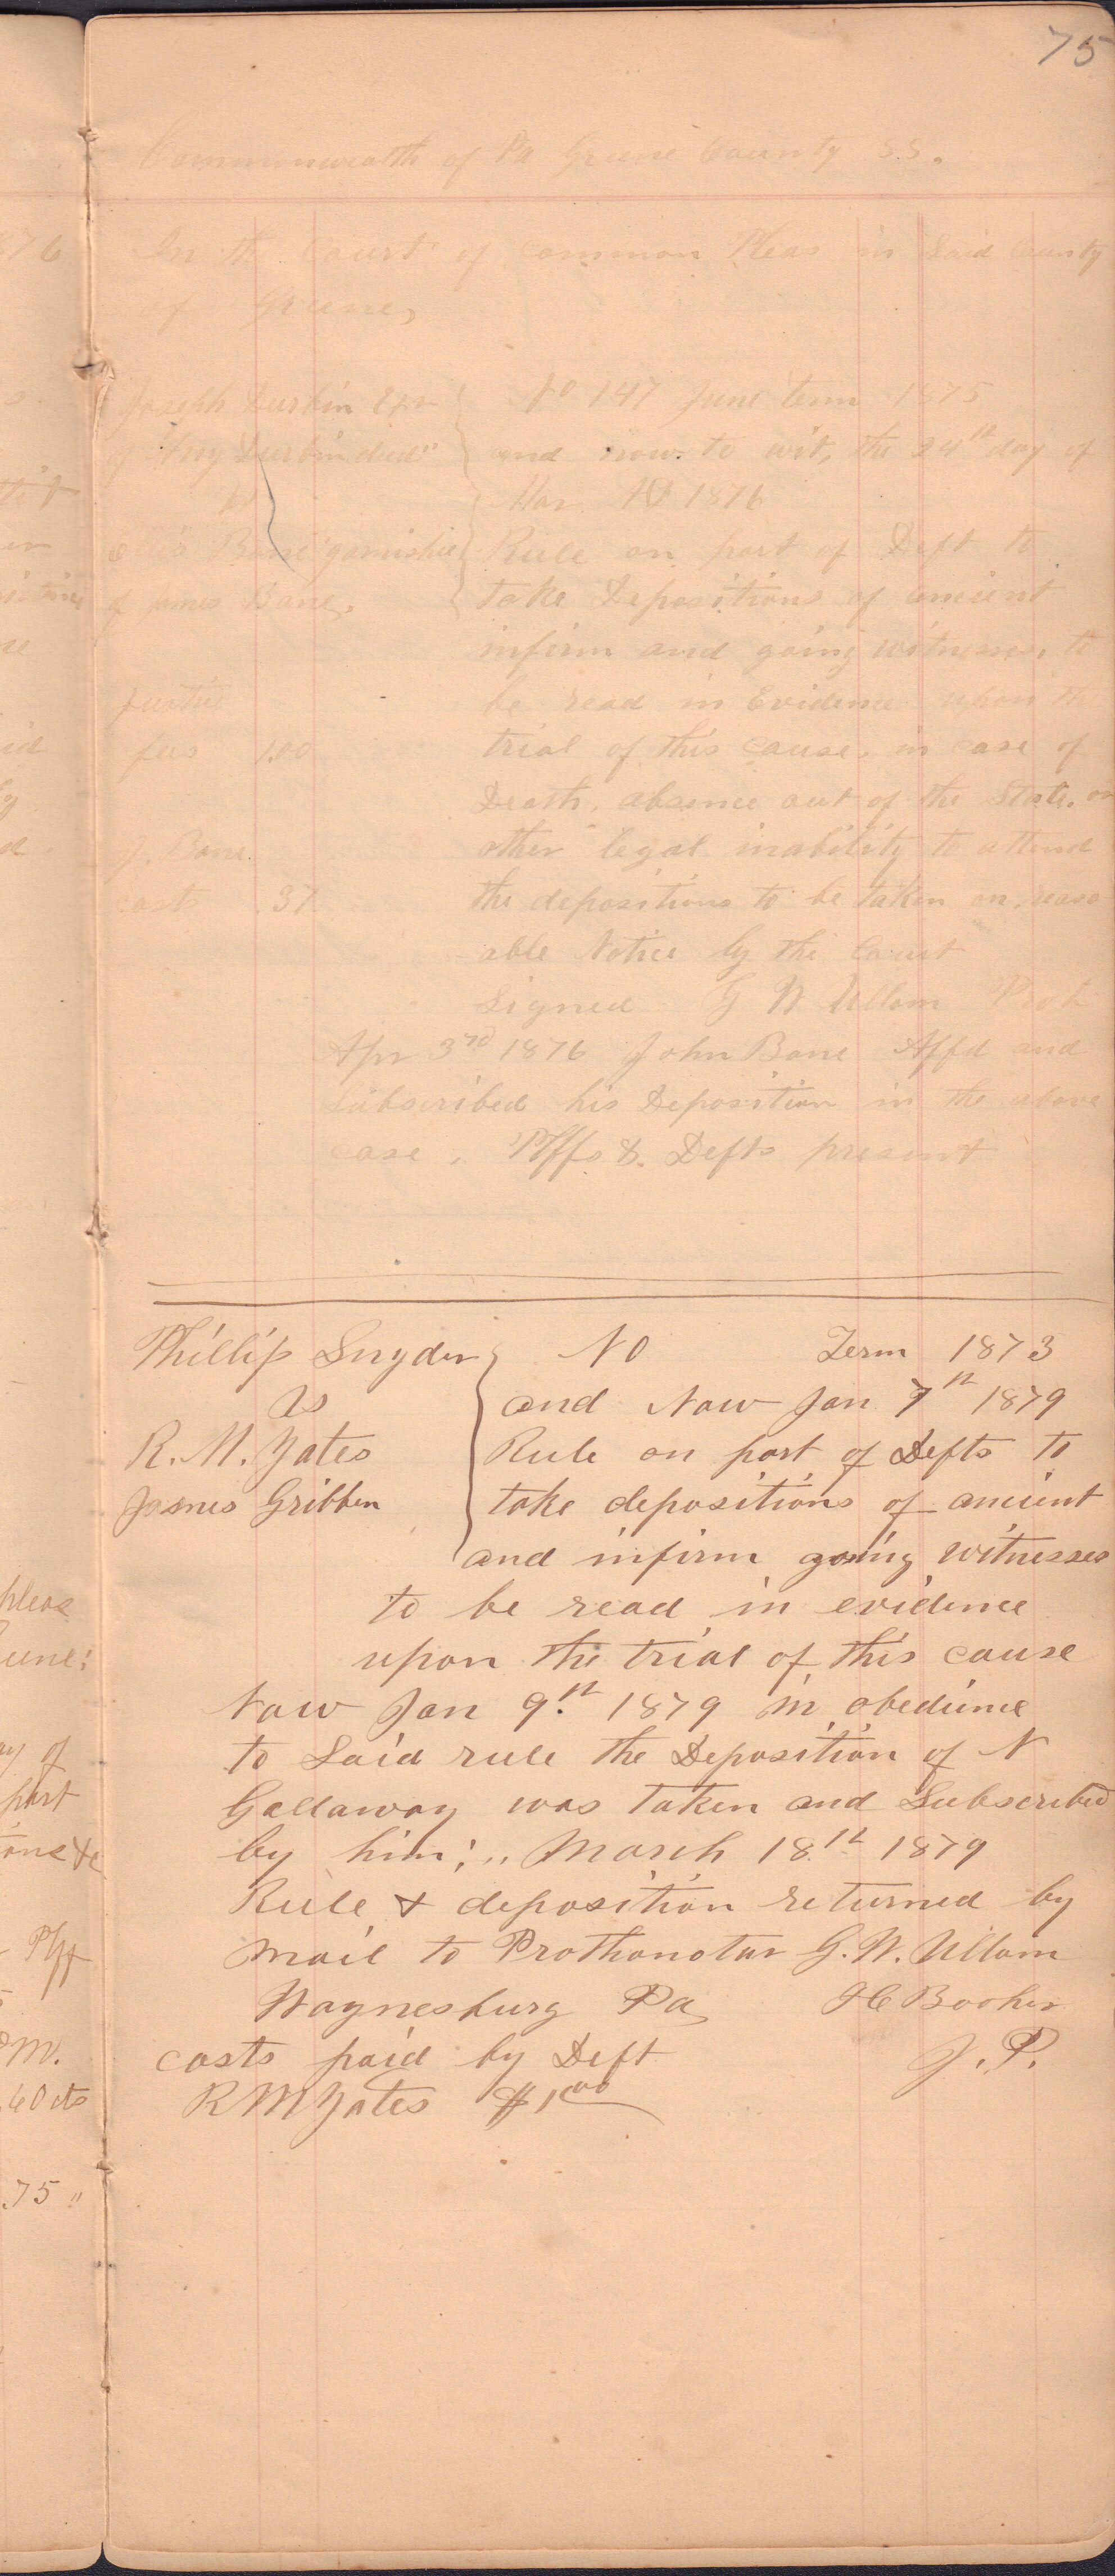 75
Commonwealth of Pa Greene County S.S.
In the Court of Common Pleas in Said County
of Greene,
Joseph Durbin Exr
of Durbin decd"
vs
Bane garnishee
of James Bane,
No 147 June term 1875
and now to wit, the 24th day of
Mar AD 1876
Rule on part of Deft to
take Depositions of ancient
infirm and going witnesses, to
be read in Evidence upon the
trial of this cause, in case of
Death, absence out of the State, or
other legal inability to attend
the depositions to be taken on, reaso
able Notice by the Court
Signed G W Ullom Proth
Justice
fees 1.00
J. Bane
costs .37
Apr 3rd 1876 John Bane Affd and
Subscribed his Deposition in the above
case, Plffs & Defts present
Phillip Snyder
vs
R. M. Yates
James Gribben
No Term 1873
and Now Jan 7th 1879
Rule on part of Defts to
take depositions of ancient
and infirm going witnesses
to be read in evidence
upon the trial of this cause
Now Jan 9th 1879 in obedience
to Said rule the Deposition of N
Gallaway was taken and Subscribed
by him; ,, March 18th 1879
Rule & deposition returned by
mail to Prothonotar G. W. Ullom
Waynesburg Pa
H C Booher
J. P.
costs paid by Deft
R M Yates $1.00